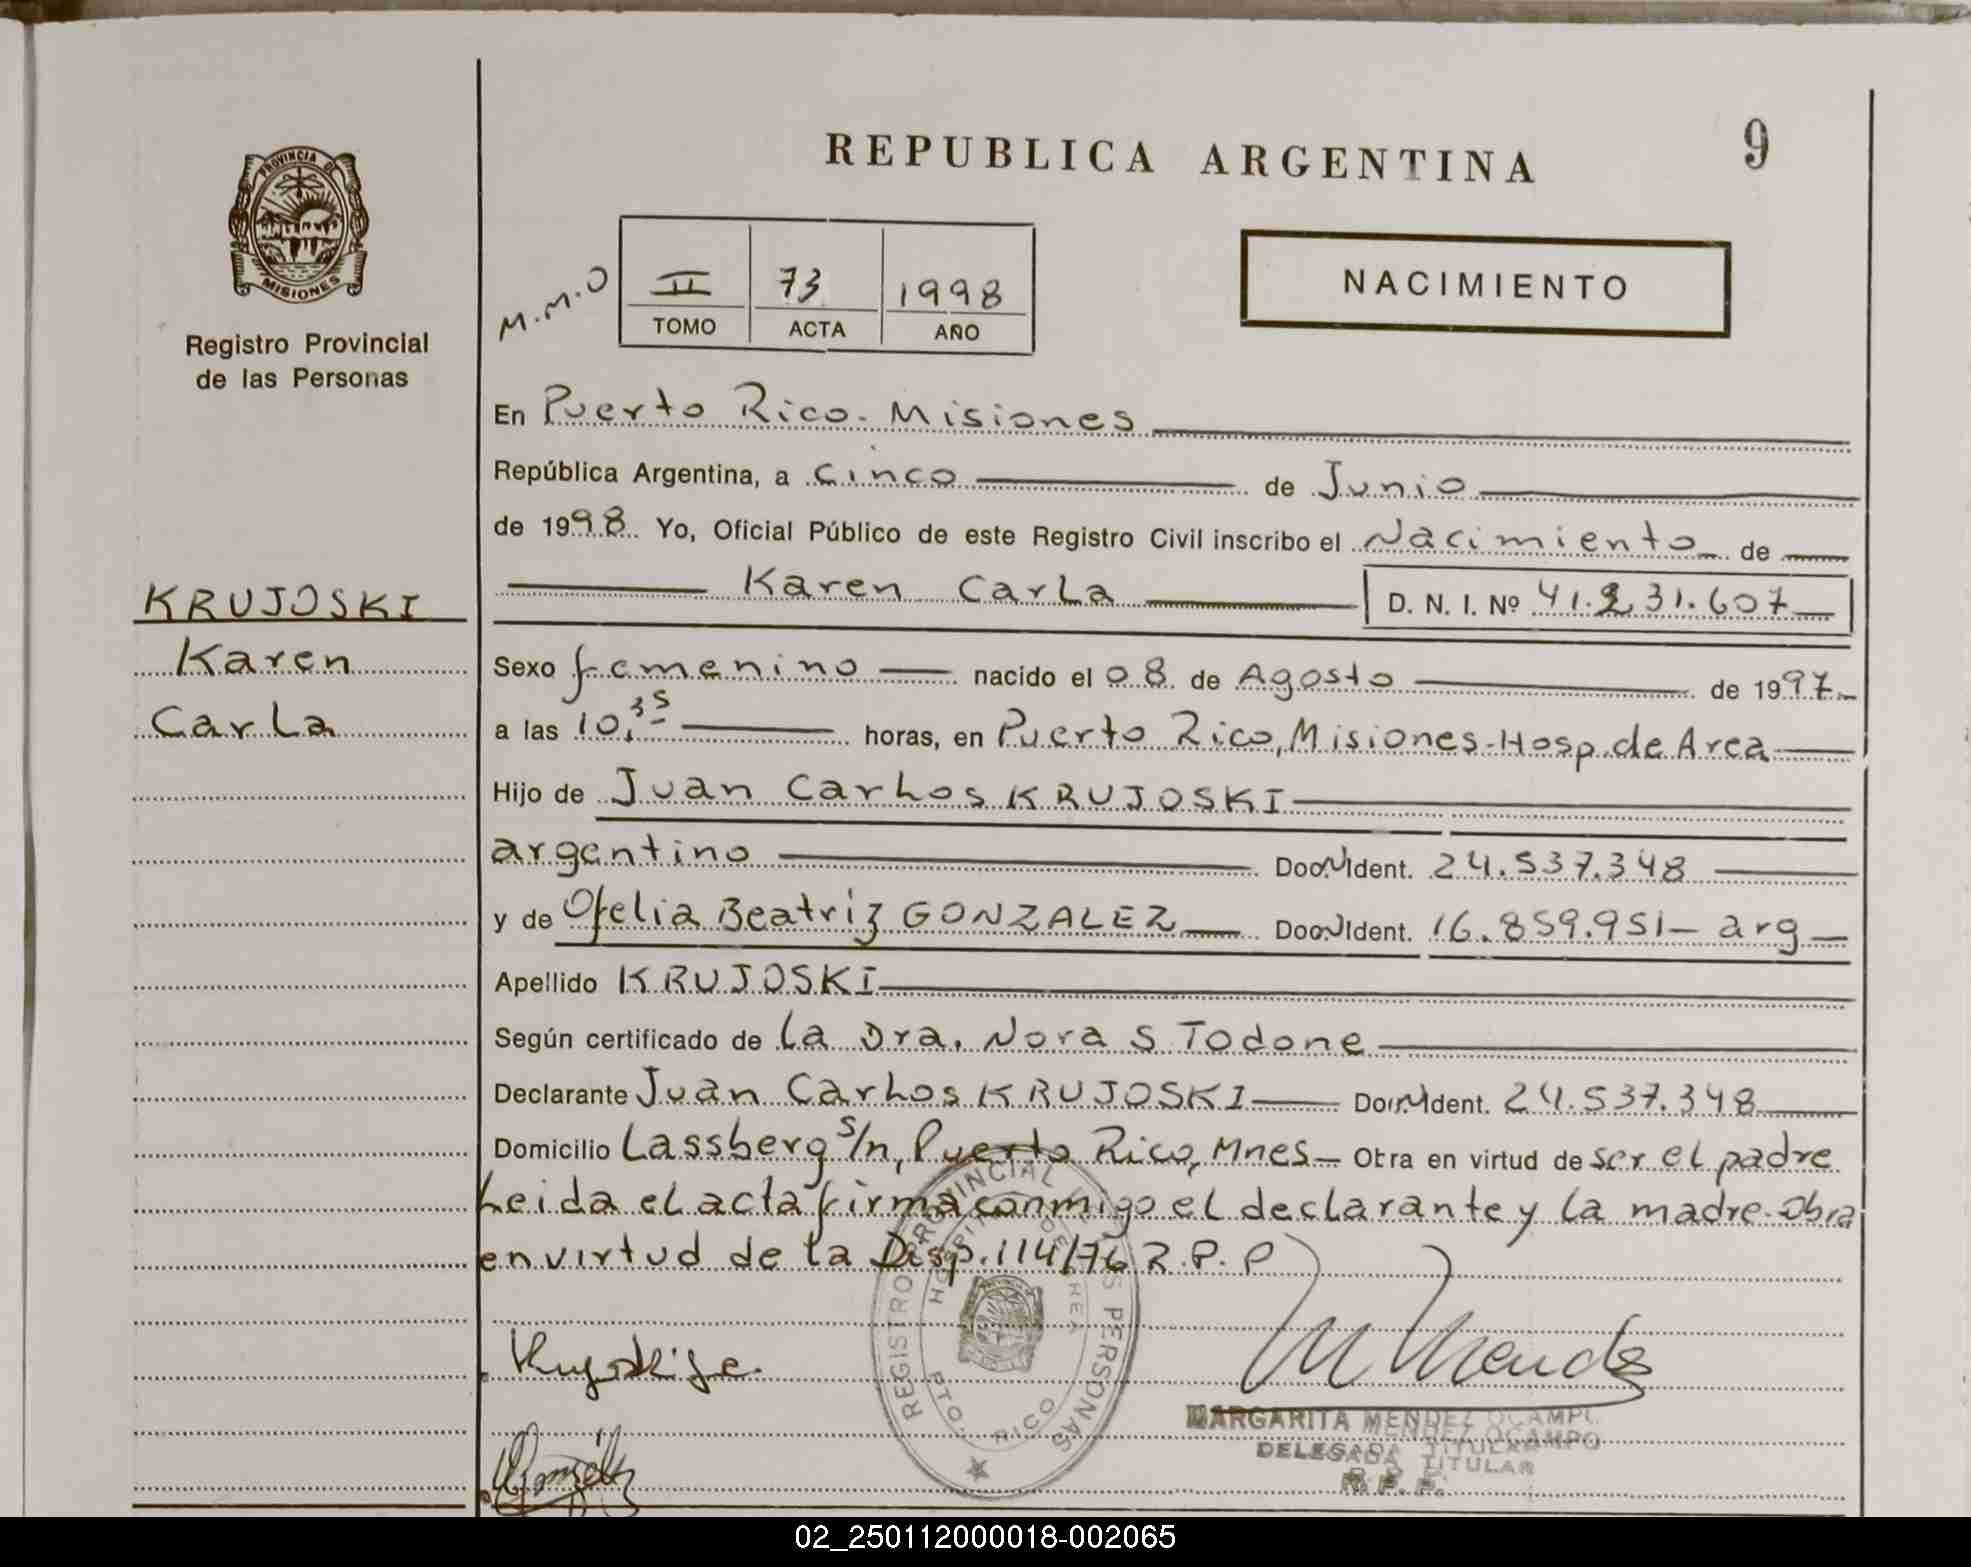 REPUBLICA ARGENTINA
9
PROVINCIA DE
MISIONES
Registro Provincial
de las Personas
M.M.O
II 73 1998
TOMO ACTA AÑO
NACIMIENTO
En Puerto Rico. Misiones
República Argentina, a cinco de Junio
de 1998 Yo, Oficial Público de este Registro Civil inscribo el Nacimiento de
Karen Carla D. N. I. Nº 41.231.607
KRUJOSKI
Karen
Carla
Sexo femenino nacido el 08 de Agosto de 1997
a las 10,35 horas, en Puerto Rico, Misiones-Hosp. de Area
Hijo de Juan Carlos KRUJOSKI
argentino Doc. Ident. 24.537.348
y de Ofelia Beatriz GONZALEZ Doc. Ident. 16.859.951- arg
Apellido KRUJOSKI
Según certificado de la Dra. Nora S Todone
Declarante Juan Carlos KRUJOSKI Ident. 24.537.348
Domicilio Lassberg s/n, Puerto Rico, Mnes- Obra en virtud de ser el padre
Leida el acta firma conmigo el declarante y la madre. Obra
en virtud de la Disp. 114/76 R.P.P
REGISTRO PROVINCIAL DE LAS PERSONAS
HOSPITAL DE AREA
PTO. RICO
MARGARITA MENDEZ OCAMPO
DELEGADA TITULAR
R. P. P.
02_250112000018-002065